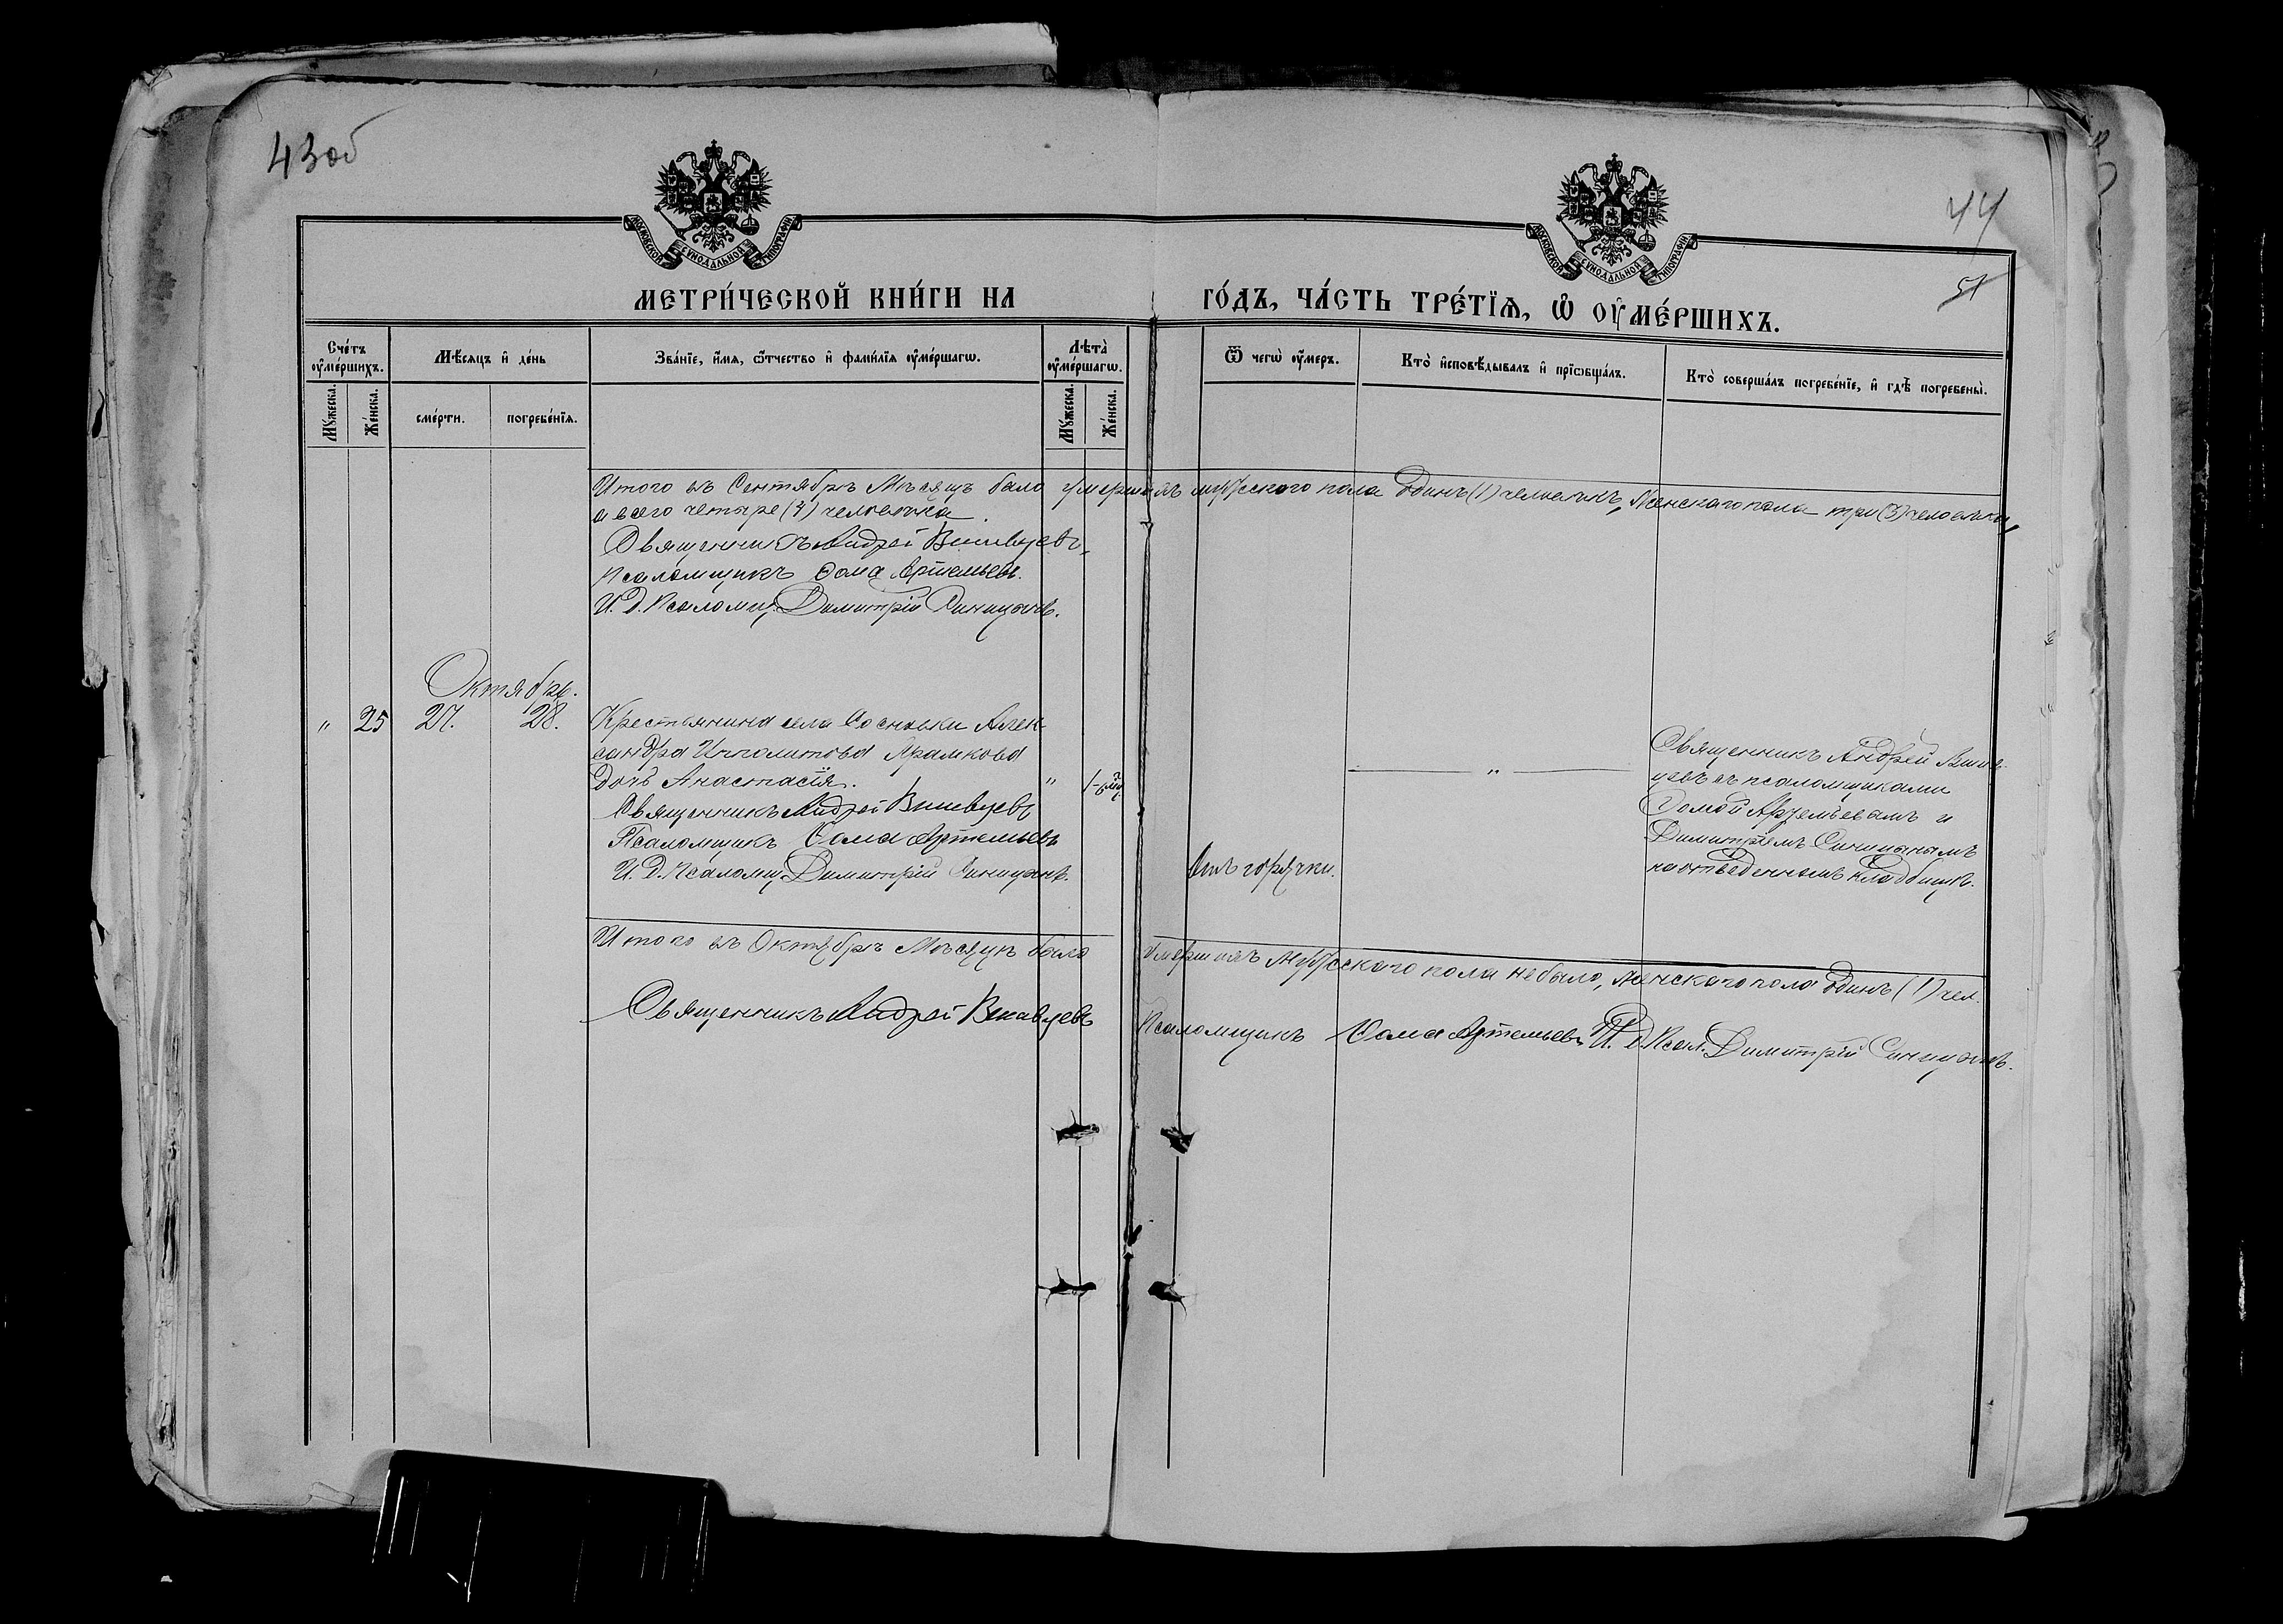 43об
44
51
МОСКОВСКОЙ СѴНОДАЛЬНОЙ ТИПОГРАФІИ
МОСКОВСКОЙ СѴНОДАЛЬНОЙ ТИПОГРАФІИ
МЕТРИ́ЧЕСКОЙ КНИ́ГИ НА ГО́ДЪ, ЧА́СТЬ ТРЕ́ТЇѦ, Ѡ҆ ОУ҆МЕ́РШИХЪ.
Сче́тъ оу҆ме́ршихъ.
Мꙋ́жеска.
Же́нска.
Мѣ́сѧцъ и҆ де́нь
сме́рти.
погребе́нїѧ.
Зва́нїе, и҆́мѧ, ѻ҆́тчество и҆ фами́лїѧ оу҆ме́ршагѡ.
Лѣта̀ оу҆ме́ршагѡ.
Мꙋ́жеска.
Же́нска.
Ѿ чегѡ̀ оу҆́меръ.
Кто̀ и҆сповѣ́дывалъ и҆ прїѡбща́лъ.
Кто̀ соверша́лъ погребе́нїе, и҆ гдѣ̀ погребены̀.
Итого въ Сентябрѣ Мѣсяцѣ было умершихъ мужескаго пола одинъ (1) человѣкъ, женскаго пола три (3) человѣка,
а всего четыре (4) человѣка.
Священникъ Андрей
Псаломщикъ Ѳома Артемьевъ.
И. Д. Псаломщ. Димитрій Синицынъ.
Октябрь.
" 25 27. 28. Крестьянина села Сосновки Алек-
сандра Ипполитова
дочь Анастасія. "
Священникъ Андрей
Псаломщикъ Ѳома Артемьевъ
И. Д. Псаломщ. Димитрій Синицынъ.
Отъ горячки.
"
Священникъ Андрей
съ псаломщиками
Ѳомой Артемьевымъ и
Димитріемъ Синицынымъ
на отведенномъ кладбищѣ.
Итого въ Октябрѣ Мѣсяцѣ было умершихъ Мужескаго пола не было, женскаго пола одинъ (1) чел.
Священникъ Андрей Псаломщикъ Ѳома Артемьевъ И. Д. Псал. Димитрій Синицынъ.